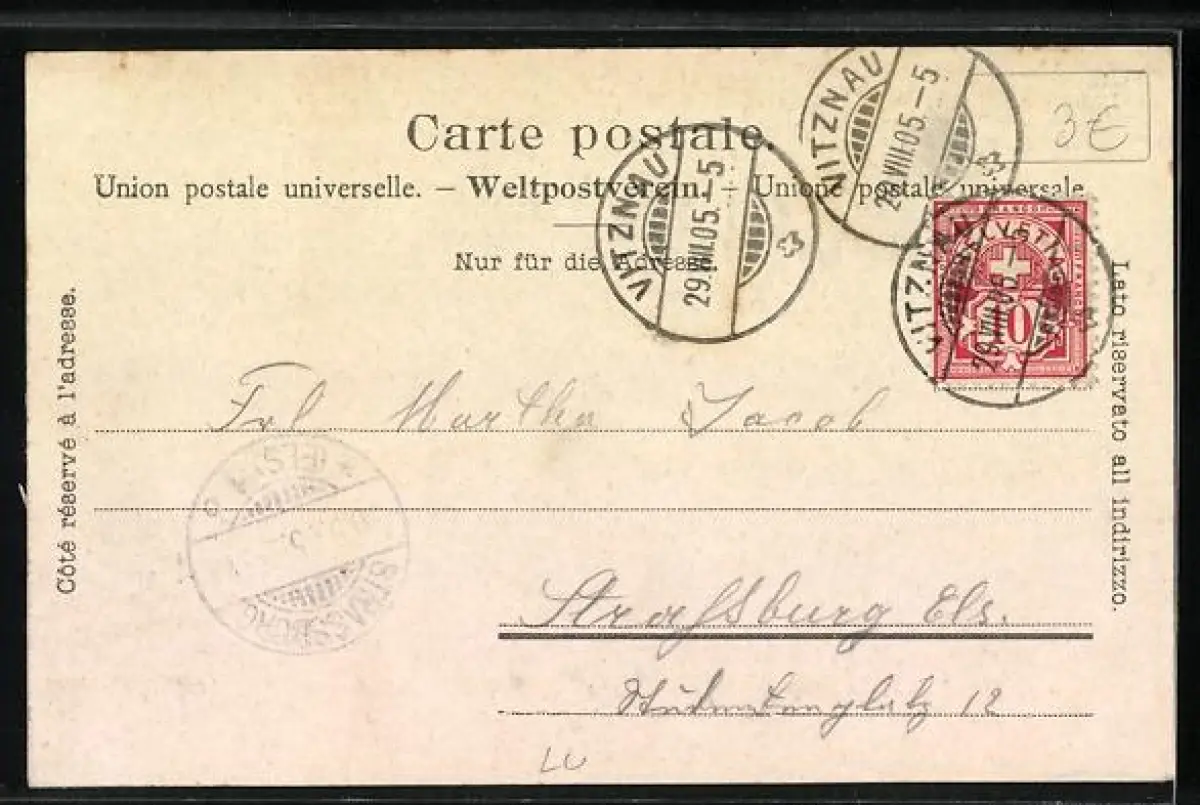 Carte postale.
Union postale universelle. — Weltpostverein. — Unione postale universale
Nur für die Adresse.
Côté réservé à l'adresse.
Lato riservato all indirizzo.
VITZNAU
29.VIII.05.–5
VITZNAU
29.VIII.05.–5
VITZNAU
29.VIII.05
HELVETIA
FRANCO
10
3€
Frl Martha Jacob
STRASSBURG
(ELS)
Straßburg Els.
12
LU